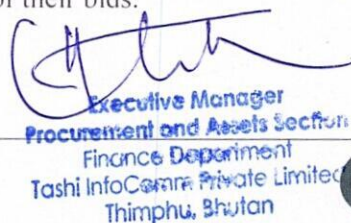 of their bids.
Executive Manager
Procurement and Assets Section
Finance Department
Tashi InfoComm Private Limited
Thimphu, Bhutan